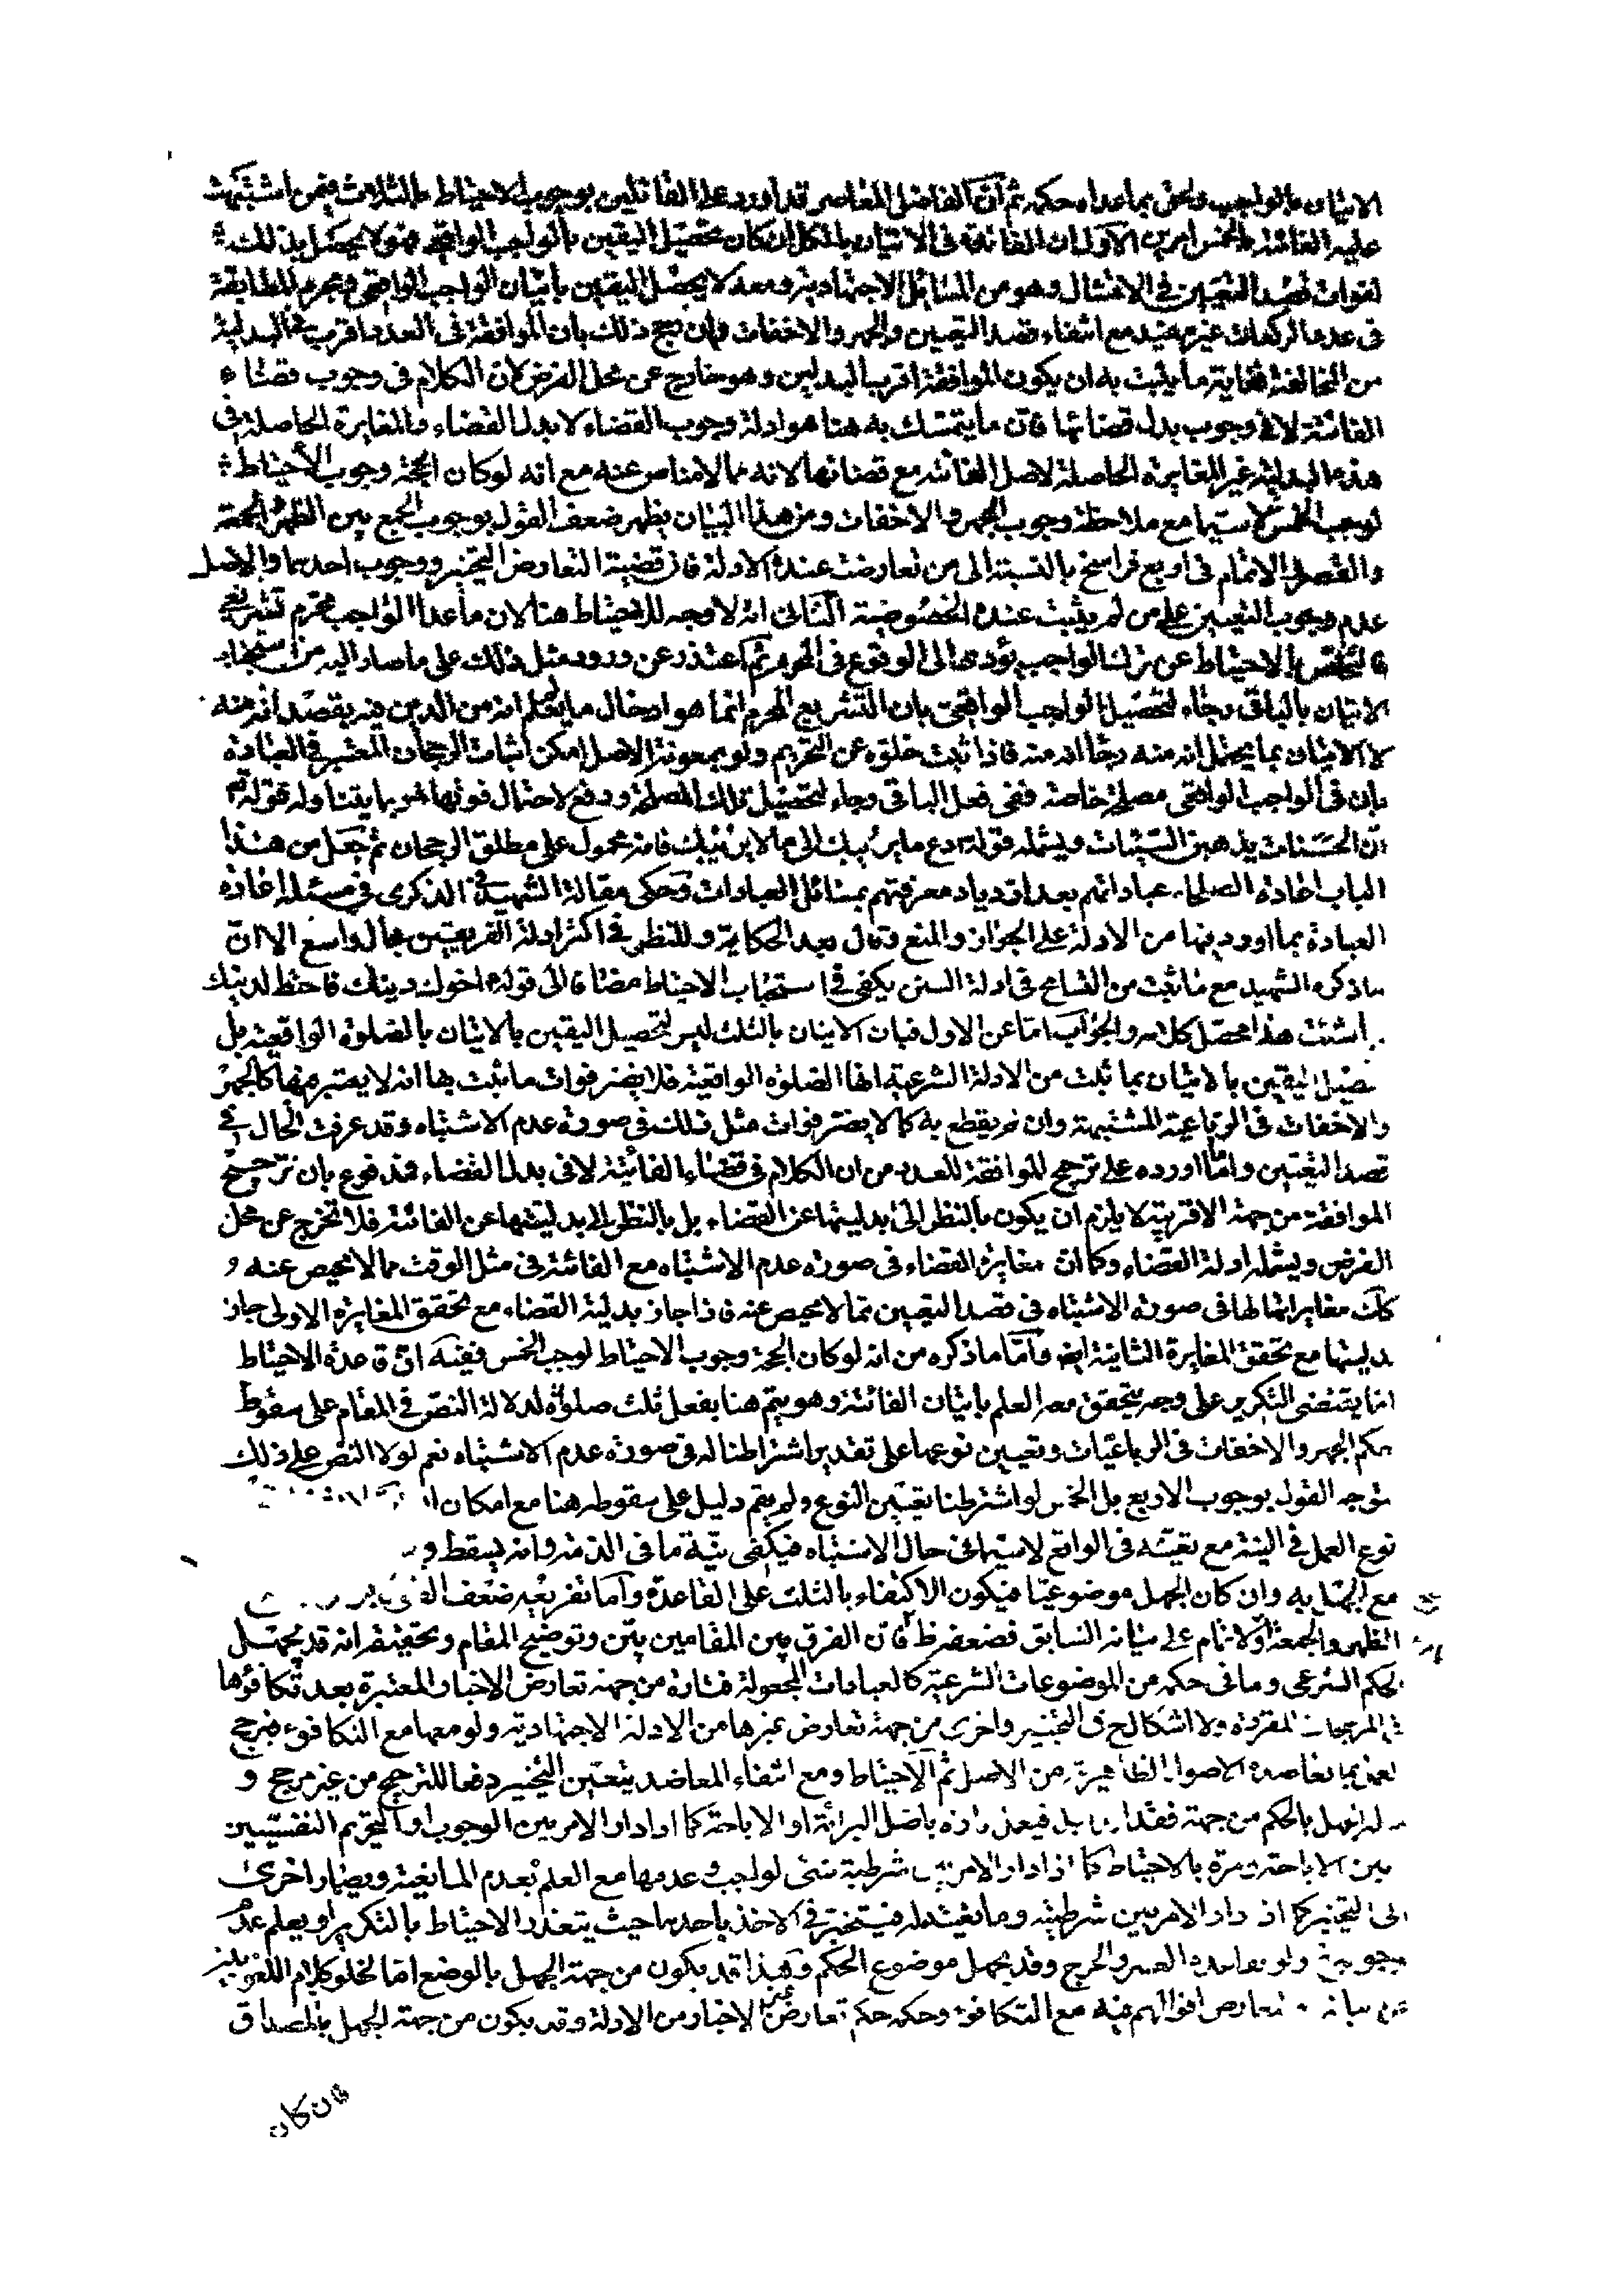 الاتيان بالواجب ولحق بما عداه حكمه ثم ان الفاضل المعاصر قد اورد على القائلين بوجوب الاحتياط بالثلاث فيمن اشتبهت
عليه الفائتة بالخمس امرين الاول ان الفائدة فى الاتيان بالكل ان كان تحصيل اليقين بالواجب الواقعى فهو لا يحصل بذلك
لفوات قصد التعيين فى الامتثال وهو من المسائل الاجتهادية ومعه لا يحصل اليقين باتيان الواجب الواقعى ومجرد المطابقة
فى عدد الركعات غير مفيد مع انتفاء قصد التعيين والجهر والاخفات وان رجح ذلك بان الموافقة فى العدد اقرب فى البدلية
من المخالفة فغاية ما يثبت به ان يكون الموافقة اقرب البدلين وهو خارج عن محل الفرض لان الكلام فى وجوب قضاء
الفائتة لا فى وجوب بدل قضائها فان ما يتمسك به هنا هو ادلة وجوب القضاء لا بدل القضاء والمغايرة الحاصلة فى
هذه البدلية غير المغايرة الحاصلة لاصل الفائتة مع قضائها لانه مما لا مناص عنه مع انه لو كان الحجة وجوب الاحتياط
لوجب الخمس لا سيما مع ملاحظة وجوب الجهر والاخفات ومن هذا البيان يظهر ضعف القول بوجوب الجمع بين الظهر والجمعة
والقصر والاتمام فى اربع فراسخ بالنسبة الى من تعارضت عنده الادلة فان قضية التعارض التخيير ووجوب احدهما والاصل
عدم وجوب التعيين على من لم يثبت عنده الخصوصية الثانى انه لا وجه للاحتياط هنا لان ما عدا الواجب محرم تشريعى
فالتخلص بالاحتياط عن ترك الواجب يؤدى الى الوقوع فى المحرم ثم اعتذر عن ورود مثل ذلك على ما صار اليه من استحباب
الاتيان بالباقى رجاء لتحصيل الواجب الواقعى بان التشريع المحرم انما هو ادخال ما يعلم انه من الدين فيه بقصد انه منه
لا الاتيان بما يحتمل انه منه رجاء انه منه فاذا ثبت خلوه عن التحريم ولو بمعونة الاصل امكن اثبات الرجحان المعتبر فى العبادة
بان فى الواجب الواقعى مصلحة خاصة ففى فعل الباقى رجاء لتحصيل تلك المصلحة ودفع لاحتمال فوتها فربما يتناوله قوله تعالى
ان الحسنات يذهبن السيئات ويشمله قوله دع ما يريبك الى ما لا يريبك فانه محمول على مطلق الرجحان ثم جعل من هذا
الباب اعادة الصلحاء عباداتهم بعد ازدياد معرفتهم بمسائل العبادات وحكى مقالة الشهيد فى الذكرى فى مسئلة اعادة
العبادة بما اورد فيها من الادلة على الجواز والمنع وقال بعد الحكاية وللنظر فى اكثر ادلة الفريقين مجال واسع الا ان
ما ذكره الشهيد مع ما ثبت من التسامح فى ادلة السنن يكفى فى استحباب الاحتياط مضافا الى قوله اخوك دينك فاحتط لدينك
بما شئت هذا محصل كلامه والجواب اما عن الاول فبان الاتيان بالثلث ليس لتحصيل اليقين بالاتيان بالصلوة الواقعية بل
لتحصيل اليقين بالاتيان بما ثبت من الادلة الشرعية انها الصلوة الواقعية فلا يضر فوات ما ثبت بها انه لا يعتبر فيها كالجهر
والاخفات فى الرباعية المشتبهة وان لم يقطع به كما لا يضر فوات مثل ذلك فى صورة عدم الاشتباه وقد عرفت الحال فى
قصد التعيين واما ما اورده على ترجيح الموافقة للعدد من ان الكلام فى قضاء الفائتة لا فى بدل القضاء فمدفوع بان ترجيح
الموافقة من جهة الاقربية لا يلزم ان يكون بالنظر الى بدليتها عن القضاء بل بالنظر الى بدليتها عن الفائتة فلا تخرج عن محل
الفرض ويشمله ادلة القضاء وكما ان مغايرة القضاء فى صورة عدم الاشتباه مع الفائتة فى مثل الوقت مما لا محيص عنه و
كك مغايرتها لها فى صورة الاشتباه فى قصد التعيين مما لا محيص عنه فاذا جاز بدلية القضاء مع تحقق المغايرة الاولى جاز
بدليتها مع تحقق المغايرة الثانية ايضا واما ما ذكره من انه لو كان الحجة وجوب الاحتياط لوجب الخمس ففيه ان قاعدة الاحتياط
انما يقتضى التكرير على وجه يتحقق معه العلم باتيان الفائتة وهو يتم هنا بفعل ثلث صلوة لدلالة النص فى المقام على سقوط
حكم الجهر والاخفات فى الرباعيات وتعيين نوعها على تقدير اشتراطنا له فى صورة عدم الاشتباه نعم لولا النص على ذلك
توجه القول بوجوب الاربع بل الخمس لو اشترطنا تعيين النوع ولم يقم دليل على سقوطه هنا مع امكان
نوع العمل فى النية مع تعينه فى الواقع لا سيما فى حال الاشتباه فيكفى نية ما فى الذمة وانه يسقط
مع الجهل به وان كان الجهل موضوعيا فيكون الاكتفاء بالثلث على القاعدة واما تفريعه ضعف القول
الظهر والجمعة او الاتمام على بيانه السابق فضعفه ظ فان الفرق بين المقامين بين وتوضيح المقام وتحقيقه انه قد يجهل
الحكم الشرعى وما فى حكمه من الموضوعات الشرعية كالعبادات المجعولة فتارة من جهة تعارض الاخبار المعتبرة بعد تكافؤها
فى المرجحات المقررة ولا اشكال ح فى التخيير واخرى من جهة تعارض غيرها من الادلة الاجتهادية ولو معها مع التكافؤ فيرجح
العمل بما تعاضده الاصول الظاهرية من الاصل ثم الاحتياط ومع انتفاء المعاضد يتعين التخيير دفعا للترجيح من غير مرجح و
بالحكم من جهة فقد الدليل فيعمل تارة باصل البرائة او الاباحة كما اذا دار الامر بين الوجوب او التحريم النفسيين
بين الاباحة ومرة بالاحتياط كما اذا دار الامر بين شرطية شئ لواجب وعدمها مع العلم بعدم المانعية ويصار اخرى
الى التخيير كما اذا دار الامر بين شرطيته ومانعيته له فيتخير فى الاخذ باحدهما حيث يتعذر الاحتياط بالتكرير او يعلم عدم
وجوبه ولو بمعاضدة العسر والحرج وقد يجهل موضوع الحكم وهذا قد يكون من جهة الجهل بالوضع اما لخلو كلام اللغويين
عن بيانه تعارض اقوالهم فيه مع التكافؤ وحكمه حكم تعارض غير الاخبار من الادلة وقد يكون من جهة الجهل بالمصداق
فان كان